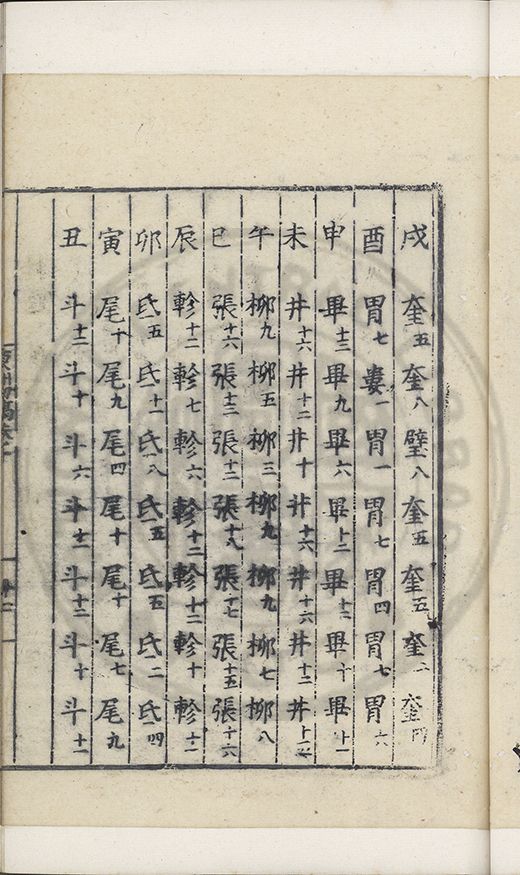 戌 奎五 奎八 壁八 奎五 奎五 奎二 奎四
酉 胃七 婁一 胃一 胃七 胃四 胃七 胃六
申 畢十三 畢九 畢六 畢十二 畢十二 畢十 畢十一
未 井十六 井十二 井十 井十六 井十六 井十二 井
午 柳九 柳五 柳三 柳九 柳九 柳七 柳八
巳 張十六 張十三 張十二 張十八 張十七 張十五 張十六
辰 軫十二 軫七 軫六 軫十二 軫十二 軫十 軫十一
卯 氐五 氐十一 氐八 氐五 氐五 氐二 氐四
寅 尾十 尾九 尾四 尾十 尾十 尾七 尾九
丑 斗十二 斗十 斗六 斗十二 斗十二 斗十 斗十一